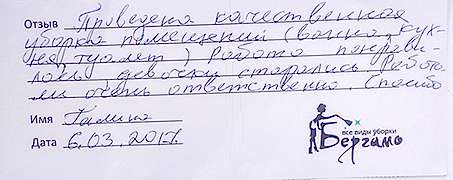 Отзыв Проведена качественная
уборка помещений (ванна, кух-
ня, туалет) Работа понрави-
лась, девочки старались. Работа-
ли очень ответственно. Спасибо
Имя Галина
Дата 6.03.2017г.
все виды уборки
Бергамо